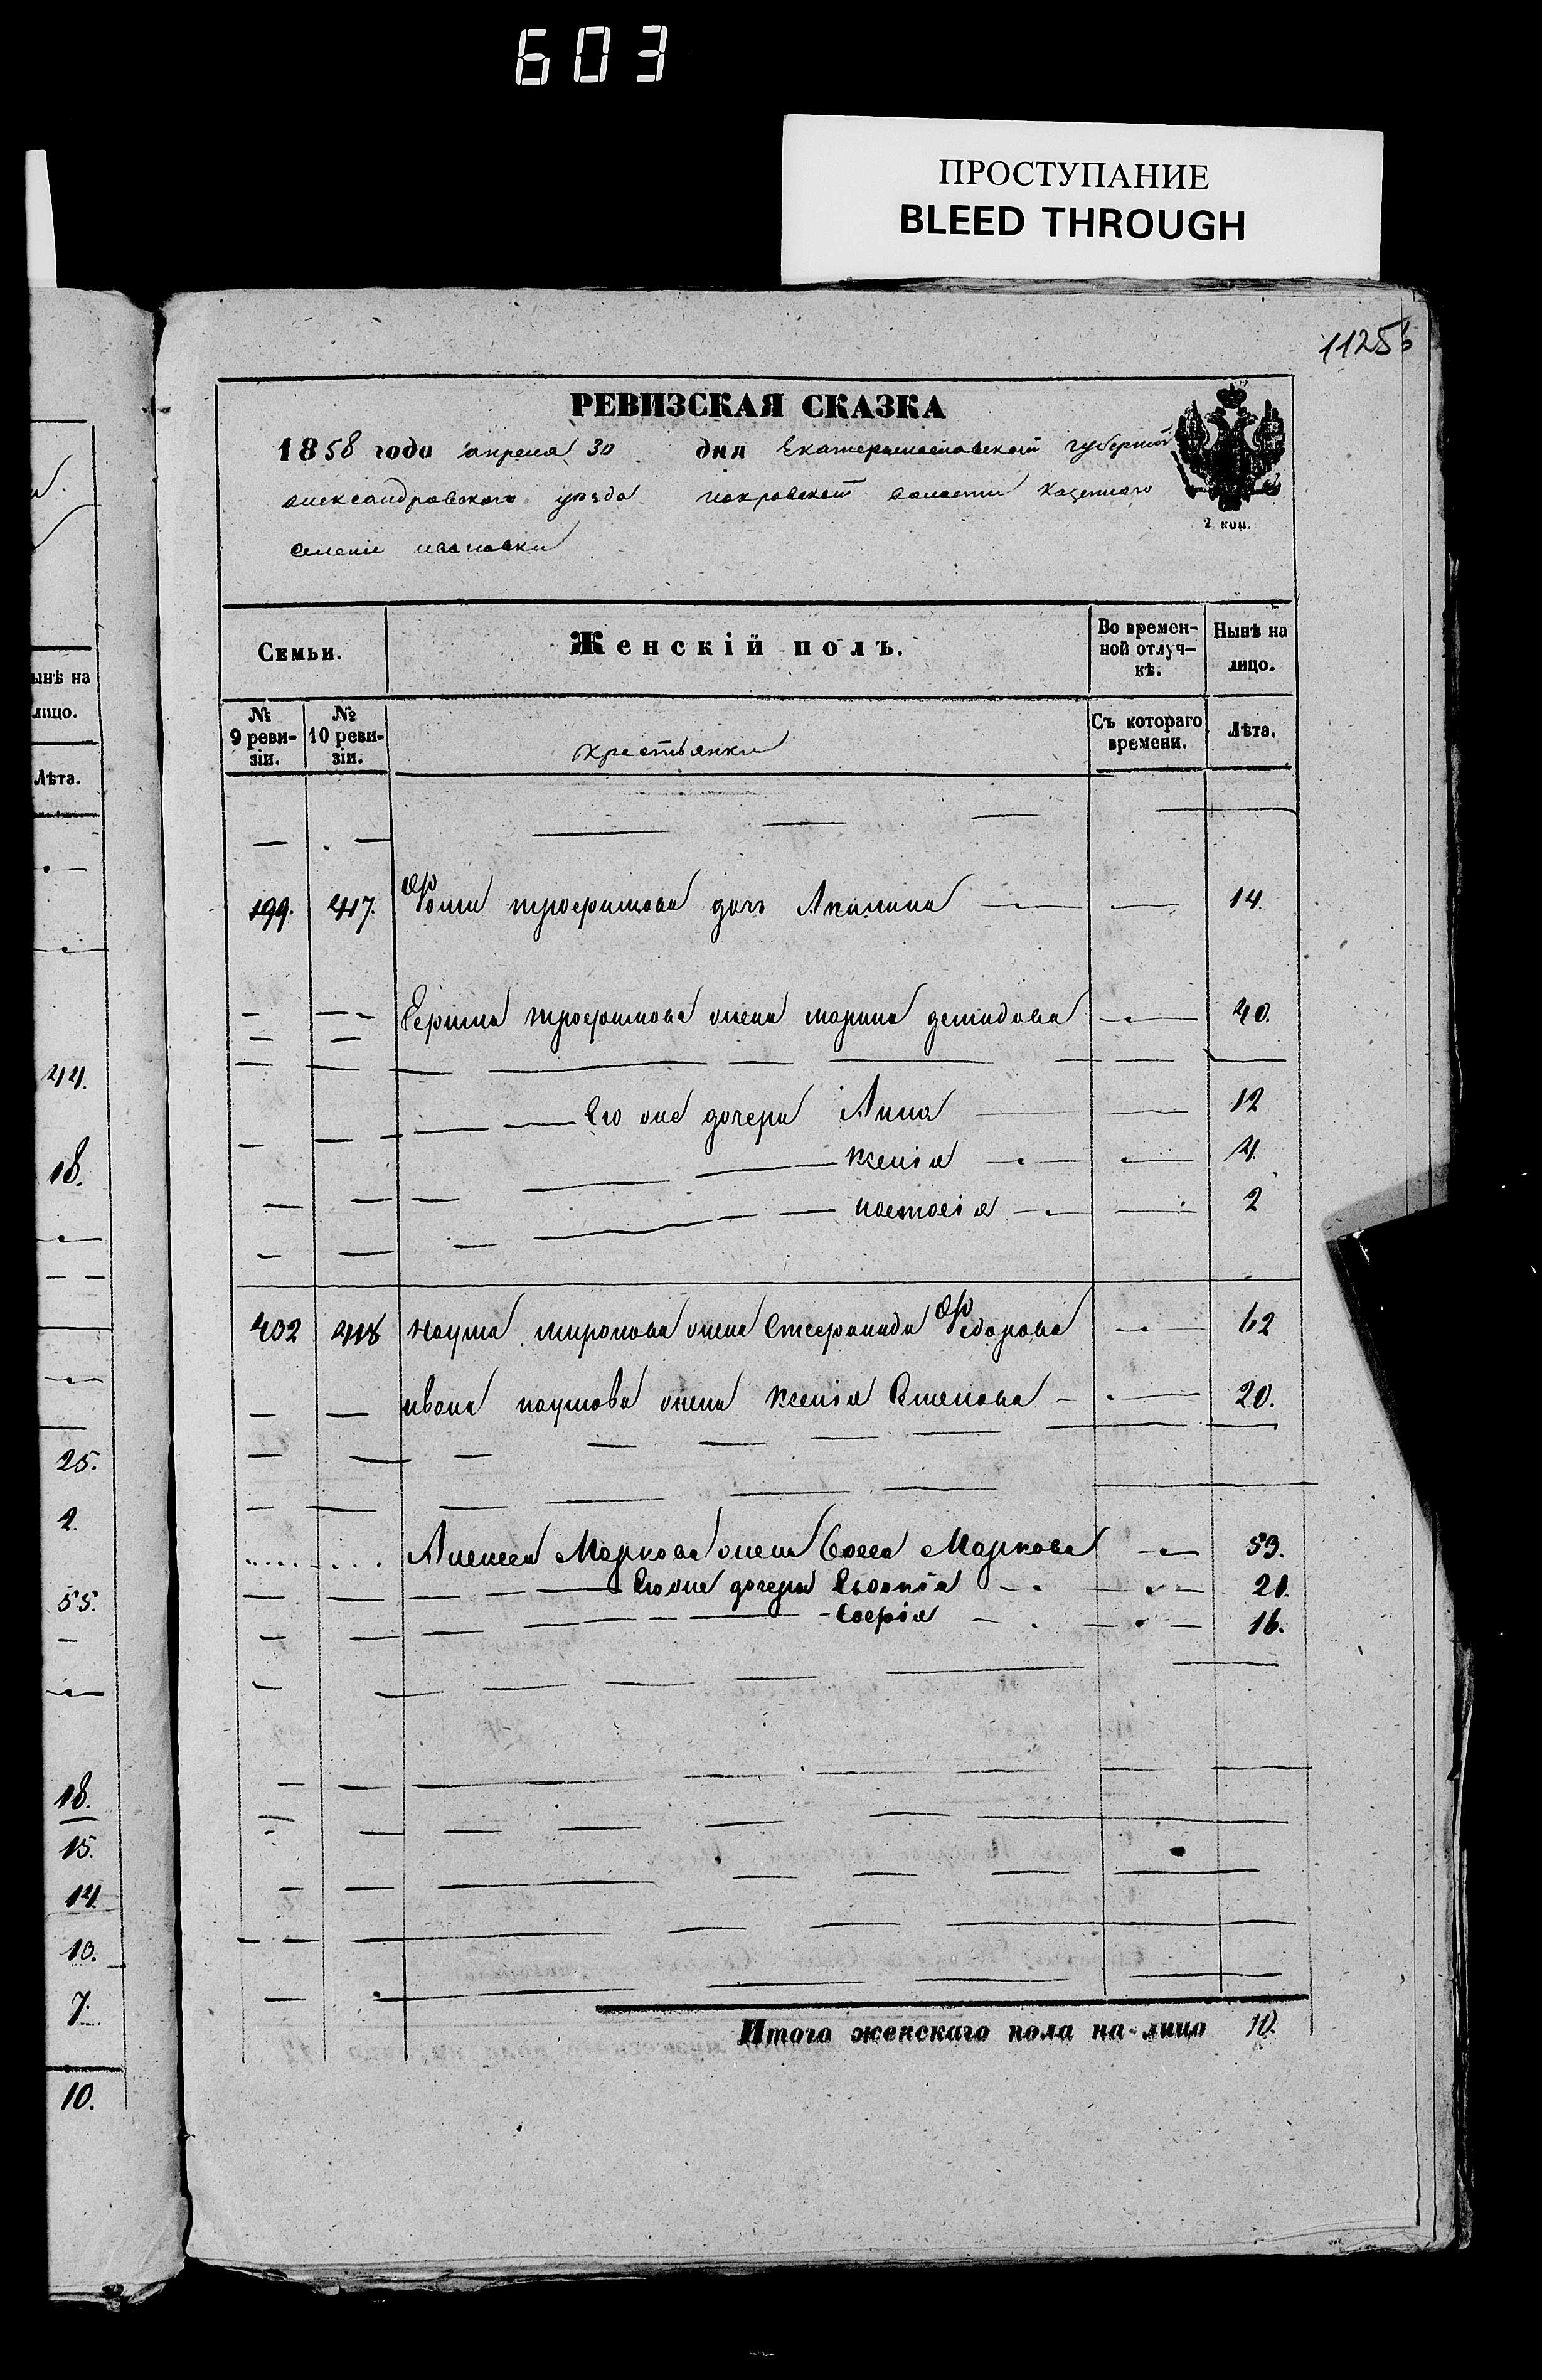 603
ПРОСТУПАНИЕ
BLEED THROUGH
1125
РЕВИЗСКАЯ СКАЗКА
1858 года апреля 30 дня Екатеринославской губернии
александровского уезда покровской волости казенного
селения ивановки
2 коп.
Семьи.
Женскій полъ.
Во времен-
ной отлуч-
кѣ.
Нынѣ на
лицо.
№
9 реви-
зіи.
№
10 реви-
зіи.
крестьянки
Съ котораго
времени.
Лѣта.
199. 417. Фомы трофимова дочь Акилина 14.
Сергия трофимова жена марина демидова 40.
Его же дочери Анна 12
ксенія 4.
настасія 2
402 418 наума миронова жена Стефанида Федорова 62
ивана наумова жена ксенія 20.
Алексея Маркова жена Маркова 53.
Его же дочери 20.
Софія 16.
Итого женскаго пола на-лицо 10.
ынѣ на
лицо.
Лѣта.
44.
18.
25.
2.
55.
18.
15.
14.
10.
7.
10.